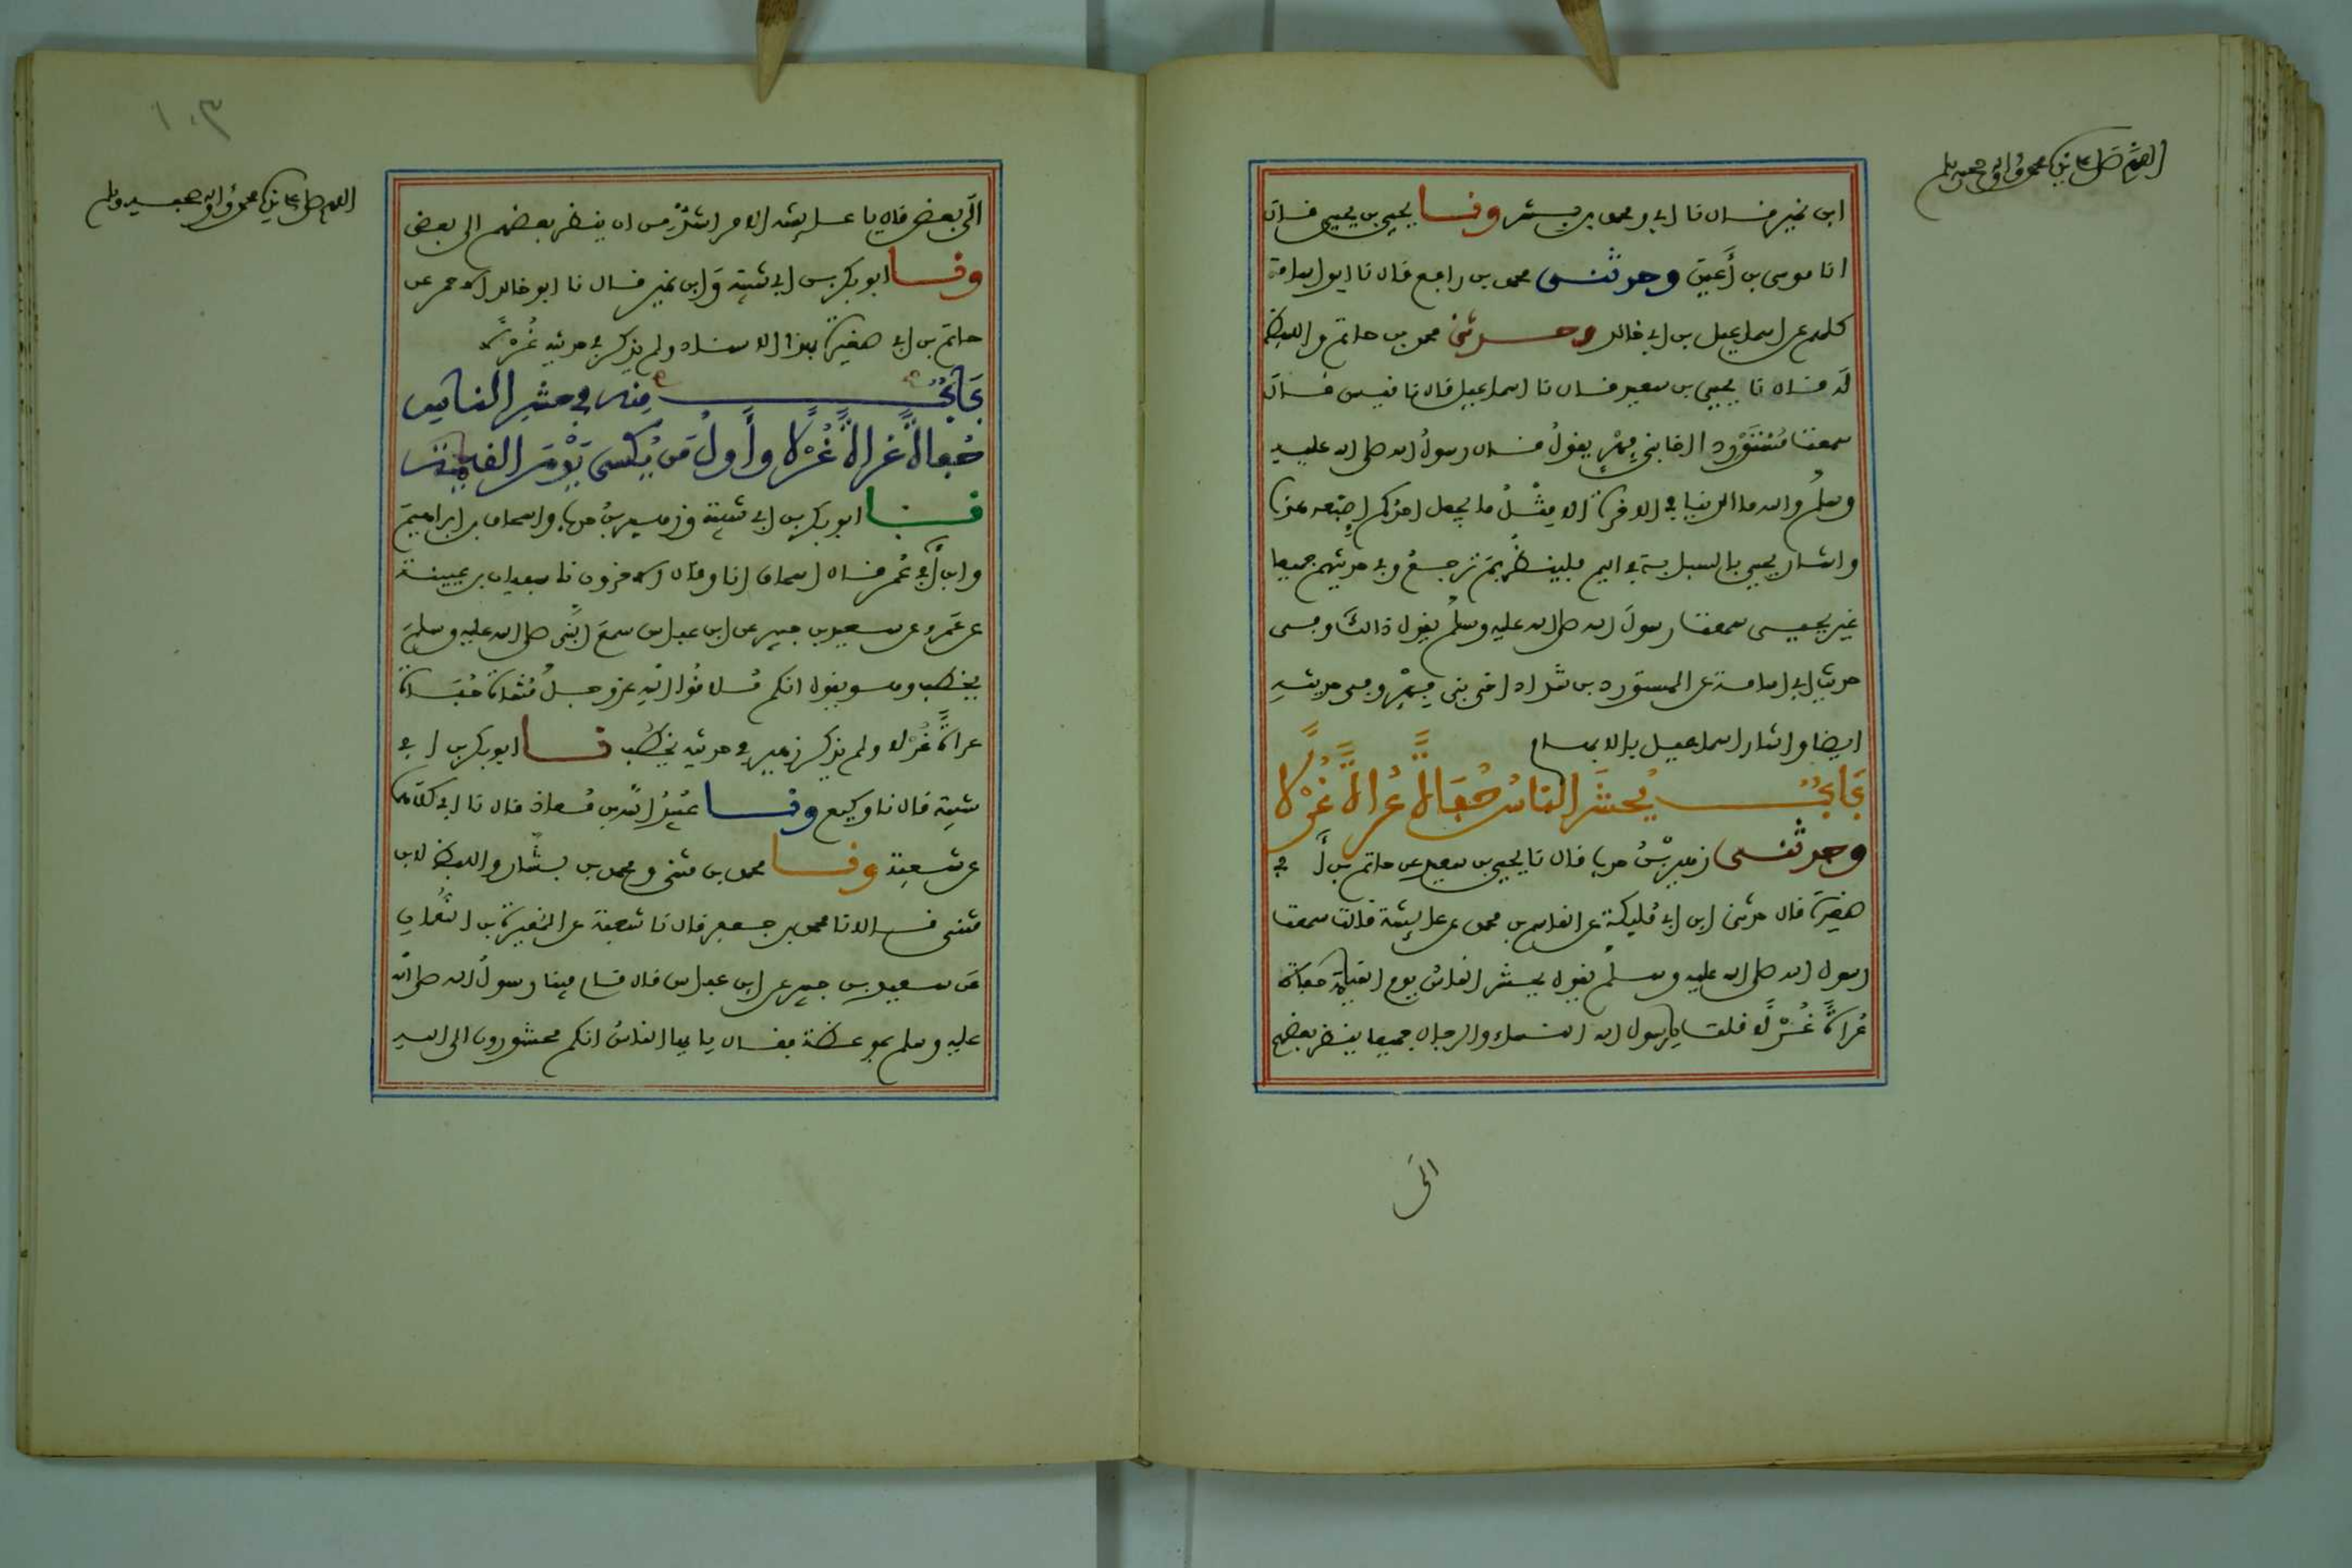 اللهم صل على نبيك محمد وآله وصحبه وسلم
ابن نمير قال نا ابي ومحمد بن بشر ونا يحيى بن يحيى قال
انا موسى بن أعين وحدثني محمد بن رافع قال نا ابو اسامة
كلهم عن اسماعيل بن ابي خالد وحدثني محمد بن حاتم واللفظ
له قال نا يحيى بن سعيد قال نا اسماعيل قال نا قيس قال
سمعت مستورد اخا بني فهر يقول قال رسول الله صلى الله عليه
وسلم والله ما الدنيا في الاخرة الا مثل ما يجعل احدكم اصبعه هذه
واشار يحيى بالسبابة في اليم فلينظر بم ترجع وفي حديثهم جميعا
غير يحيى سمعت رسول الله صلى الله عليه وسلم يقول ذالك وفي
حديث ابي اسامة عن المستورد بن شداد اخي بني فهر وفي حديثه
ايضا واشار اسماعيل بالابهام
باب يحشر الناس حفاة عراة غرلا
وحدثني زهير بن حرب قال نا يحيى بن سعيد عن حاتم بن أبي
صغيرة قال حدثني ابن ابي مليكة عن القاسم بن محمد عن عايشة قالت سمعت
رسول الله صلى الله عليه وسلم يقول يحشر الناس يوم القيمة حفاة
عراة غرلا قلت يا رسول الله النساء والرجال جميعا ينظر بعضهم
الى
١٠٣
اللهم صل على نبيك محمد وآله وصحبه وسلم
الى بعض قال يا عايشة الامر اشد من ان ينظر بعضهم الى بعض
ونا ابو بكر بن ابي شيبة وابن نمير قال نا ابو خالد الاحمر عن
حاتم بن ابي صغيرة بهذا الاسناد ولم يذكر في حديثه غرلا
باب منه في حشر الناس
حفاة عراة غرلا وأول من يكسى يوم القيمة
نا ابو بكر بن ابي شيبة وزهير بن حرب واسحاق بن ابراهيم
وابن أبي عمر قال اسحاق انا وقال الاخرون نا سفيان بن عيينة
عن عمرو عن سعيد بن جبير عن ابن عباس سمع النبي صلى الله عليه وسلم
يخطب وهو يقول انكم ملاقوا الله عز وجل مشاة حفاة
عراة غرلا ولم يذكر زهير في حديثه يخطب نا ابو بكر بن ابي
شيبة قال نا وكيع ونا عبيد الله بن معاذ قال نا ابي كلاهما
عن شعبة ونا محمد بن مثنى ومحمد بن بشار واللفظ لابن
مثنى قالا نا محمد بن جعفر قال نا شعبة عن المغيرة بن النعمان
عن سعيد بن جبير عن ابن عباس قال قام فينا رسول الله صلى الله
عليه وسلم بموعظة فقال يا ايها الناس انكم محشورون الى الله